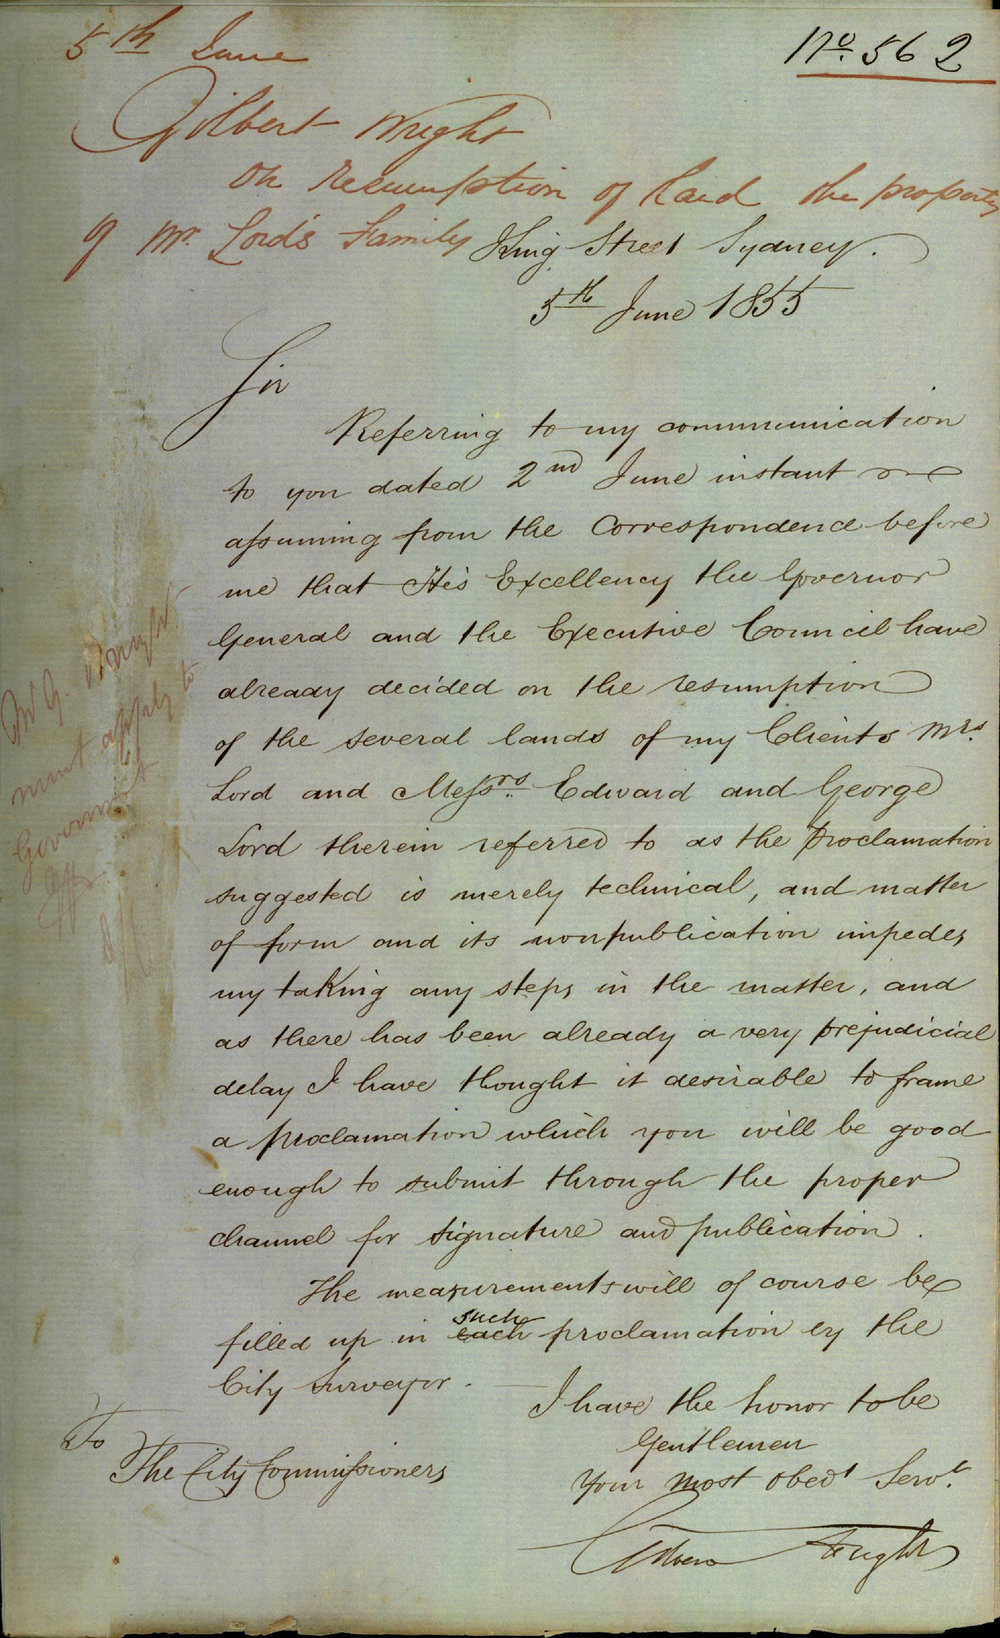 5th June
No. 562
Gilbert Wright
on resumption of Land the property
of Mr Lord's Family
King Street Sydney.
5th June 1855
Sir
Referring to my communication
to you dated 2nd June instant and
assuming from the Correspondence before
me that His Excellency the Governor
General and the Executive Council have
already decided on the resumption
of the several lands of my Clients Mrs.
Lord and Messrs. Edward and George
Lord therein referred to as the Proclamation
suggested is merely technical, and matter
of form and its nonpublication impedes
my taking any steps in the matter, and
as there has been already a very prejudicial
delay I have thought it desirable to frame
a proclamation which you will be good
enough to submit through the proper
channel for signature and publication.
The measurements will of course be
such
filled up in each proclamation by the
City Surveyor.
I have the honor to be
Gentlemen
Your most obedt Servt.
Gilbert Wright
To
The City Commissioners
Mr G. Wright
must apply to
Government